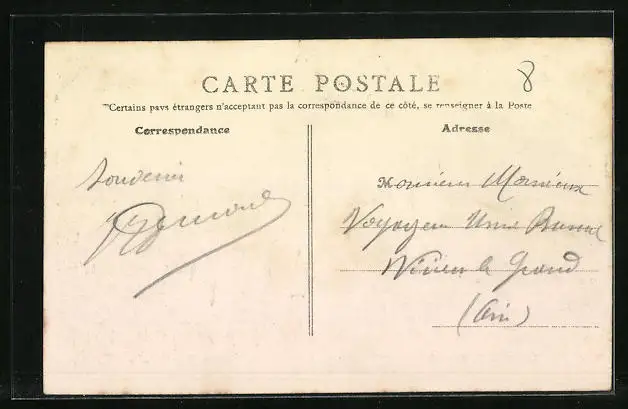 8
CARTE POSTALE
Certains pays étrangers n'acceptant pas la correspondance de ce côté, se renseigner à la Poste
Correspondance
Adresse
Souvenir
Monsieur
Voyageur
le Grand
(Ain)